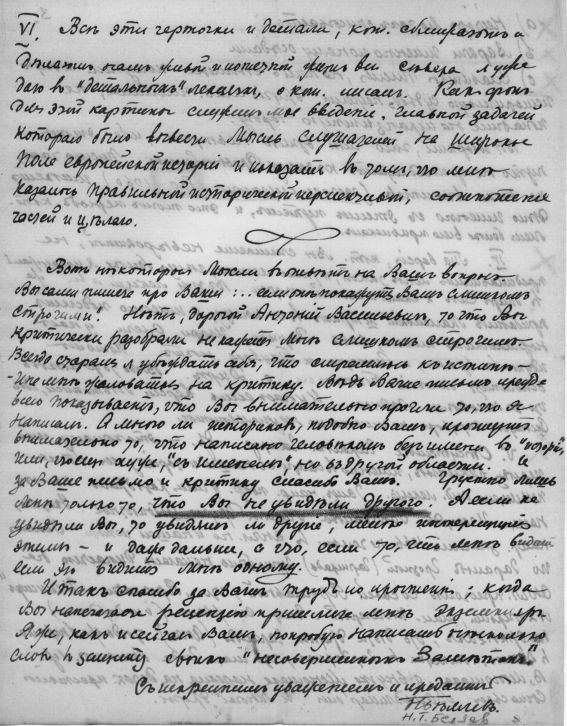 VI. Всѣ эти черточки и детали, кот. обмираютъ и
дѣлаютъ намъ живой и понечкой жизнь все сѣвера я уже
даю в "детальныхъ" лекціяхъ, о кот. писалъ. Какъ фонъ
для этой картинки служитъ мое введеніе. Главной задачей
котораго было вывести мысль слушателей на широкое
поле европейской исторіи и показать въ томъ, что мнѣ
казалось правильной исторической перспективѣ, соотношеніе
частей и цѣлаго.
Вотъ нѣкоторыя мысли въ отвѣтъ на Вашъ вопросъ.
Вы сами пишете про Ваши :... если онѣ покажутся Вамъ слишкомъ
строгими! Нѣтъ, дорогой Антоній Васильевичъ, то что Вы
критически разобрали не кажется мнѣ слишкомъ строгимъ.
Всегда старался я убѣждать себя, что стремясь къ истинѣ —
не мнѣ жаловаться на критику. Вѣдь Ваше письмо прежде
всего показываетъ, что Вы внимательно прочли то, что я
написалъ. А много ли историковъ, подобно Вамъ, прочтутъ
внимательно то, что написано человѣкомъ безъ имени въ "исторіи"
или, что еще хуже, "съ именемъ", но въ другой области. И
за Ваше письмо и критику спасибо Вамъ. Грустно лишь
мнѣ только то, что Вы не увидѣли другого. А если не
увидѣли Вы, то увидятъ ли другіе, менѣе интересующіеся
этимъ — и даже дальше, а что, если то, что мнѣ видно
если это видно мнѣ одному.
Итакъ спасибо за Вашъ трудъ по прочтенію; когда
Вы напечатаете рецензію пришлите мнѣ экземпляръ.
Я же, какъ и сейчасъ Вамъ, попробую написать нѣсколько
словъ въ защиту своихъ "несовершенныхъ Замѣтокъ."
Съ искреннимъ уваженіемъ и преданный
Н. Бѣляевъ.
Н.Т. Беляев